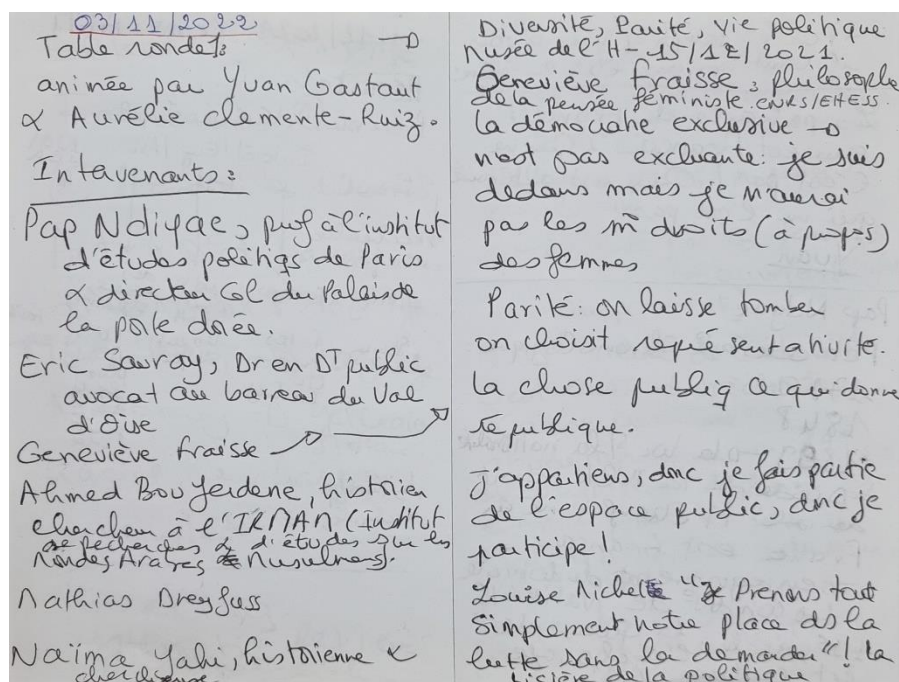 03/11/2022
Table ronde 1:
animée par Yvan Gastaut
& Aurélie Clemente-Ruiz.
Intervenants:
Pap Ndiyae, prof à l'institut
d'études politiqs de Paris
& directeur Gl du Palais de
la porte dorée.
Eric Sauray, Dr en DT public
avocat au barreau du Val
d'Oise
Geneviève Fraisse
Ahmed Bouyerdene, historien
chercheur à l'IRMAM (Institut
de recherches & d'études sur les
Mondes Arabes & Musulmans).
Mathias Dreyfuss
Naïma Yahi, historienne &
chercheuse
Diversité, Parité, vie politique
Musée de l'H - 15/12/2021.
Geneviève Fraisse, philosophe
de la pensée féministe. CNRS/EHESS.
la démocratie exclusive
n'est pas excluante: je suis
dedans mais je n'aurai
pas les m̂ droits (à propos)
des femmes
Parité: on laisse tomber
on choisit représentativité.
la chose publiq ce qui donne
république.
J'appartiens, donc je fais partie
de l'espace public, donc je
participe!
Louise Michel " Prenons tout
simplement notre place ds la
lutte sans la demander"! la
lisière de la politique